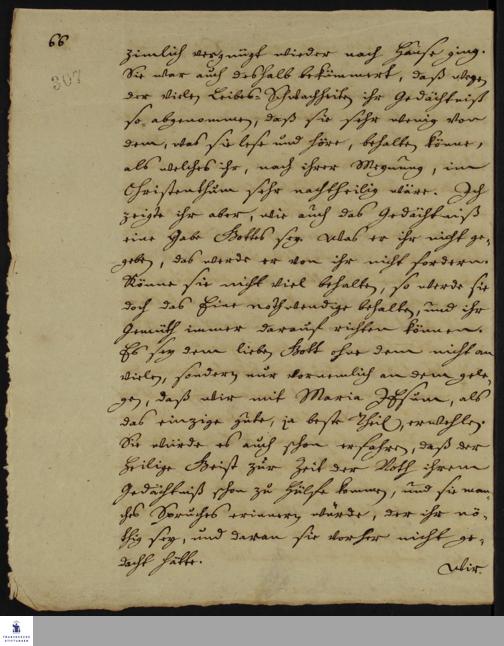 66
307
zimlich vergnügt wieder nach Hause ging.
Sie war auch deshalb bekümmert, daß wegen
der vielen Leibes-Schwachheiten ihr Gedächtniß
so abgenommen, daß sie sehr wenig von
dem, was sie lese und höre, behalten könne,
als welches ihr, nach ihrer Meynung, im
Christenthum sehr nachtheilig wäre. Ich
zeigte ihr aber, wie auch das Gedächtniß
eine Gabe Gottes sey. Was er ihr nicht ge-
geben, das werde er von ihr nicht fordern.
Könne sie nicht viel behalten, so werde sie
doch das Eine nothwendige behalten, und ihr
Gemüth immer darauf richten können.
Es sey dem lieben Gott ohne dem nicht an
vielen, sondern nur vornemlich an dem gele-
gen, daß wir mit Maria JEsum, als
das einzige gute, ja beste Theil, erwehlen.
Sie würde es auch schon erfahren, daß der
Heilige Geist zur Zeit der Noth ihrem
Gedächtniß schon zu Hülfe kommen, und sie man-
ches Spruches erinnern würde, der ihr nö-
thig sey, und daran sie vorher nicht ge-
dacht hätte.
Wir
FRANCKESCHE
STIFTUNGEN